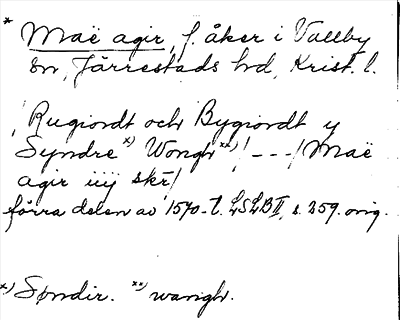 * Maë agir, f. åker i Vallby
sn, Järrestads hd, Krist. l.
/Rugiordt och Bygiordt y
Syndre x) Wongh xx)/ - - - / Maë
agir iiij skr/
förra delen av 1570-t. LSLB II, s. 259. orig.
x) Søndir. xx) wangh.